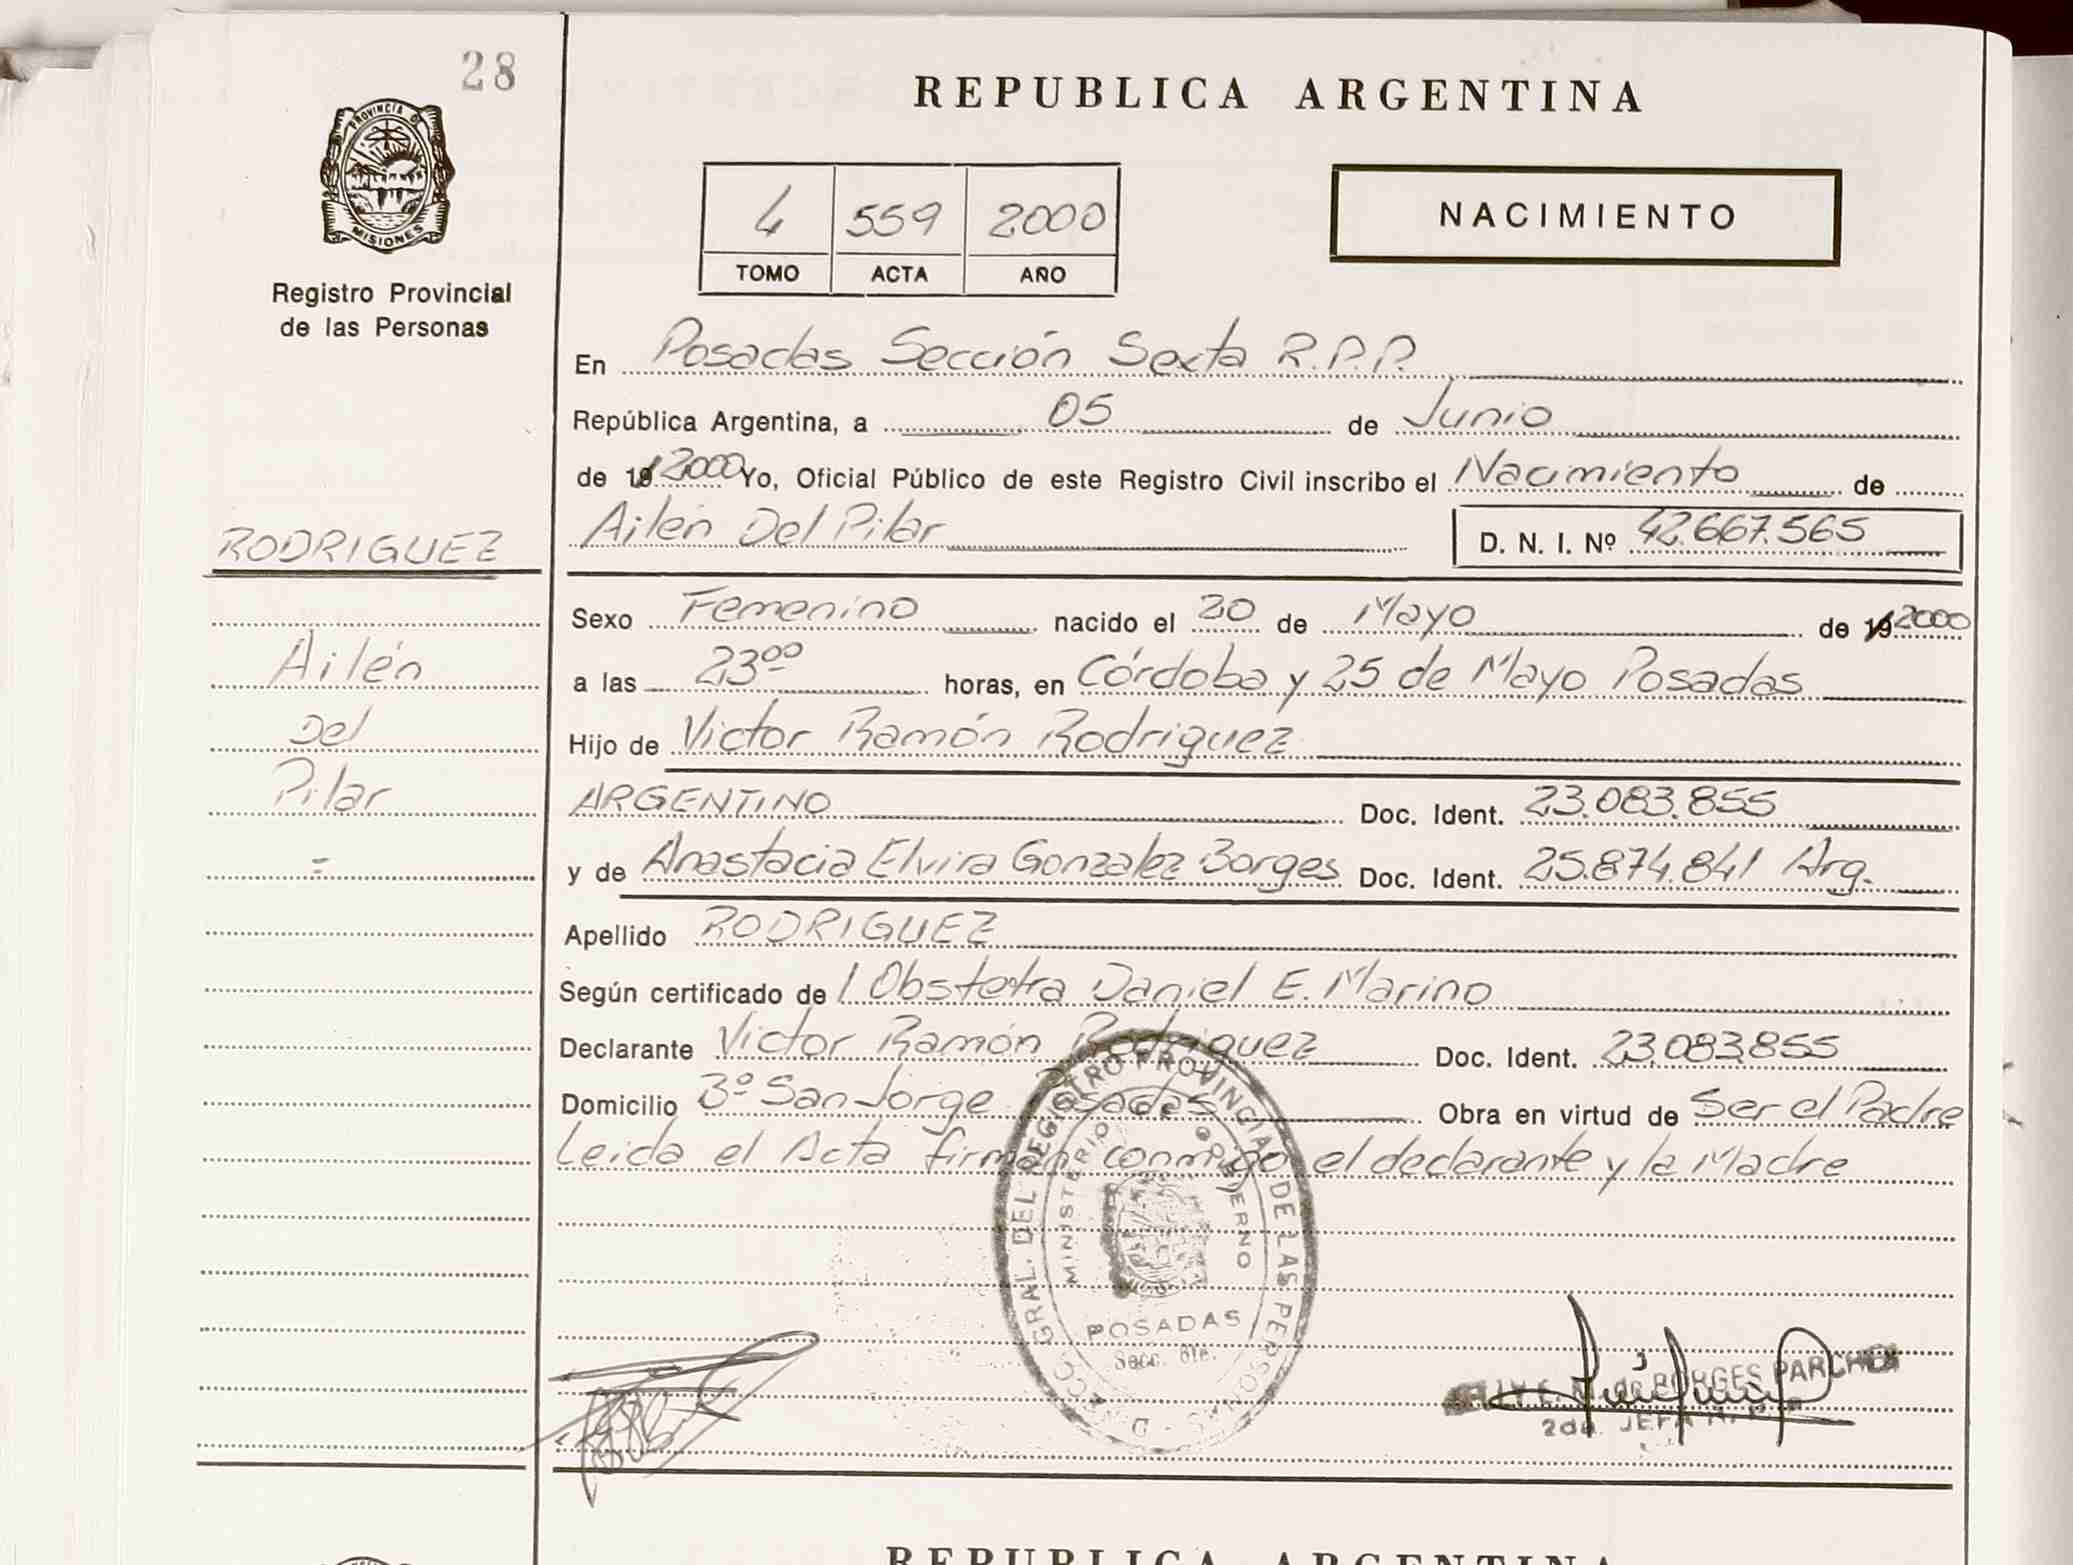 28
PROVINCIA DE
MISIONES
Registro Provincial
de las Personas
REPUBLICA ARGENTINA
4 559 2000
TOMO ACTA AÑO
NACIMIENTO
En Posadas Sección Sexta R.P.P.
República Argentina, a 05 de Junio
de 19 2000 Yo, Oficial Público de este Registro Civil inscribo el Nacimiento de
Ailén Del Pilar D. N. I. Nº 42.667.565
RODRIGUEZ
Sexo Femenino nacido el 20 de Mayo de 19 2000
Ailén
a las 23ºº horas, en Córdoba y 25 de Mayo Posadas
Del
Hijo de Victor Ramón Rodriguez
Pilar
ARGENTINO Doc. Ident. 23.083.855
=
y de Anastacia Elvira Gonzalez Borges Doc. Ident. 25.874.841 Arg.
Apellido RODRIGUEZ
Según certificado de l Obstetra Daniel E. Marino
Declarante Victor Ramón Rodriguez Doc. Ident. 23.083.855
Domicilio Bº San Jorge Posadas Obra en virtud de Ser el Padre
Leida el Acta firman conmigo el declarante y la Madre
GRAL. DEL REGISTRO PROVINCIAL DE LAS PERSONAS
MINISTERIO GOBIERNO
POSADAS
Secc. 6ta.
de BORGES PARCHE
2da. JEFA
REPUBLICA ARGENTINA